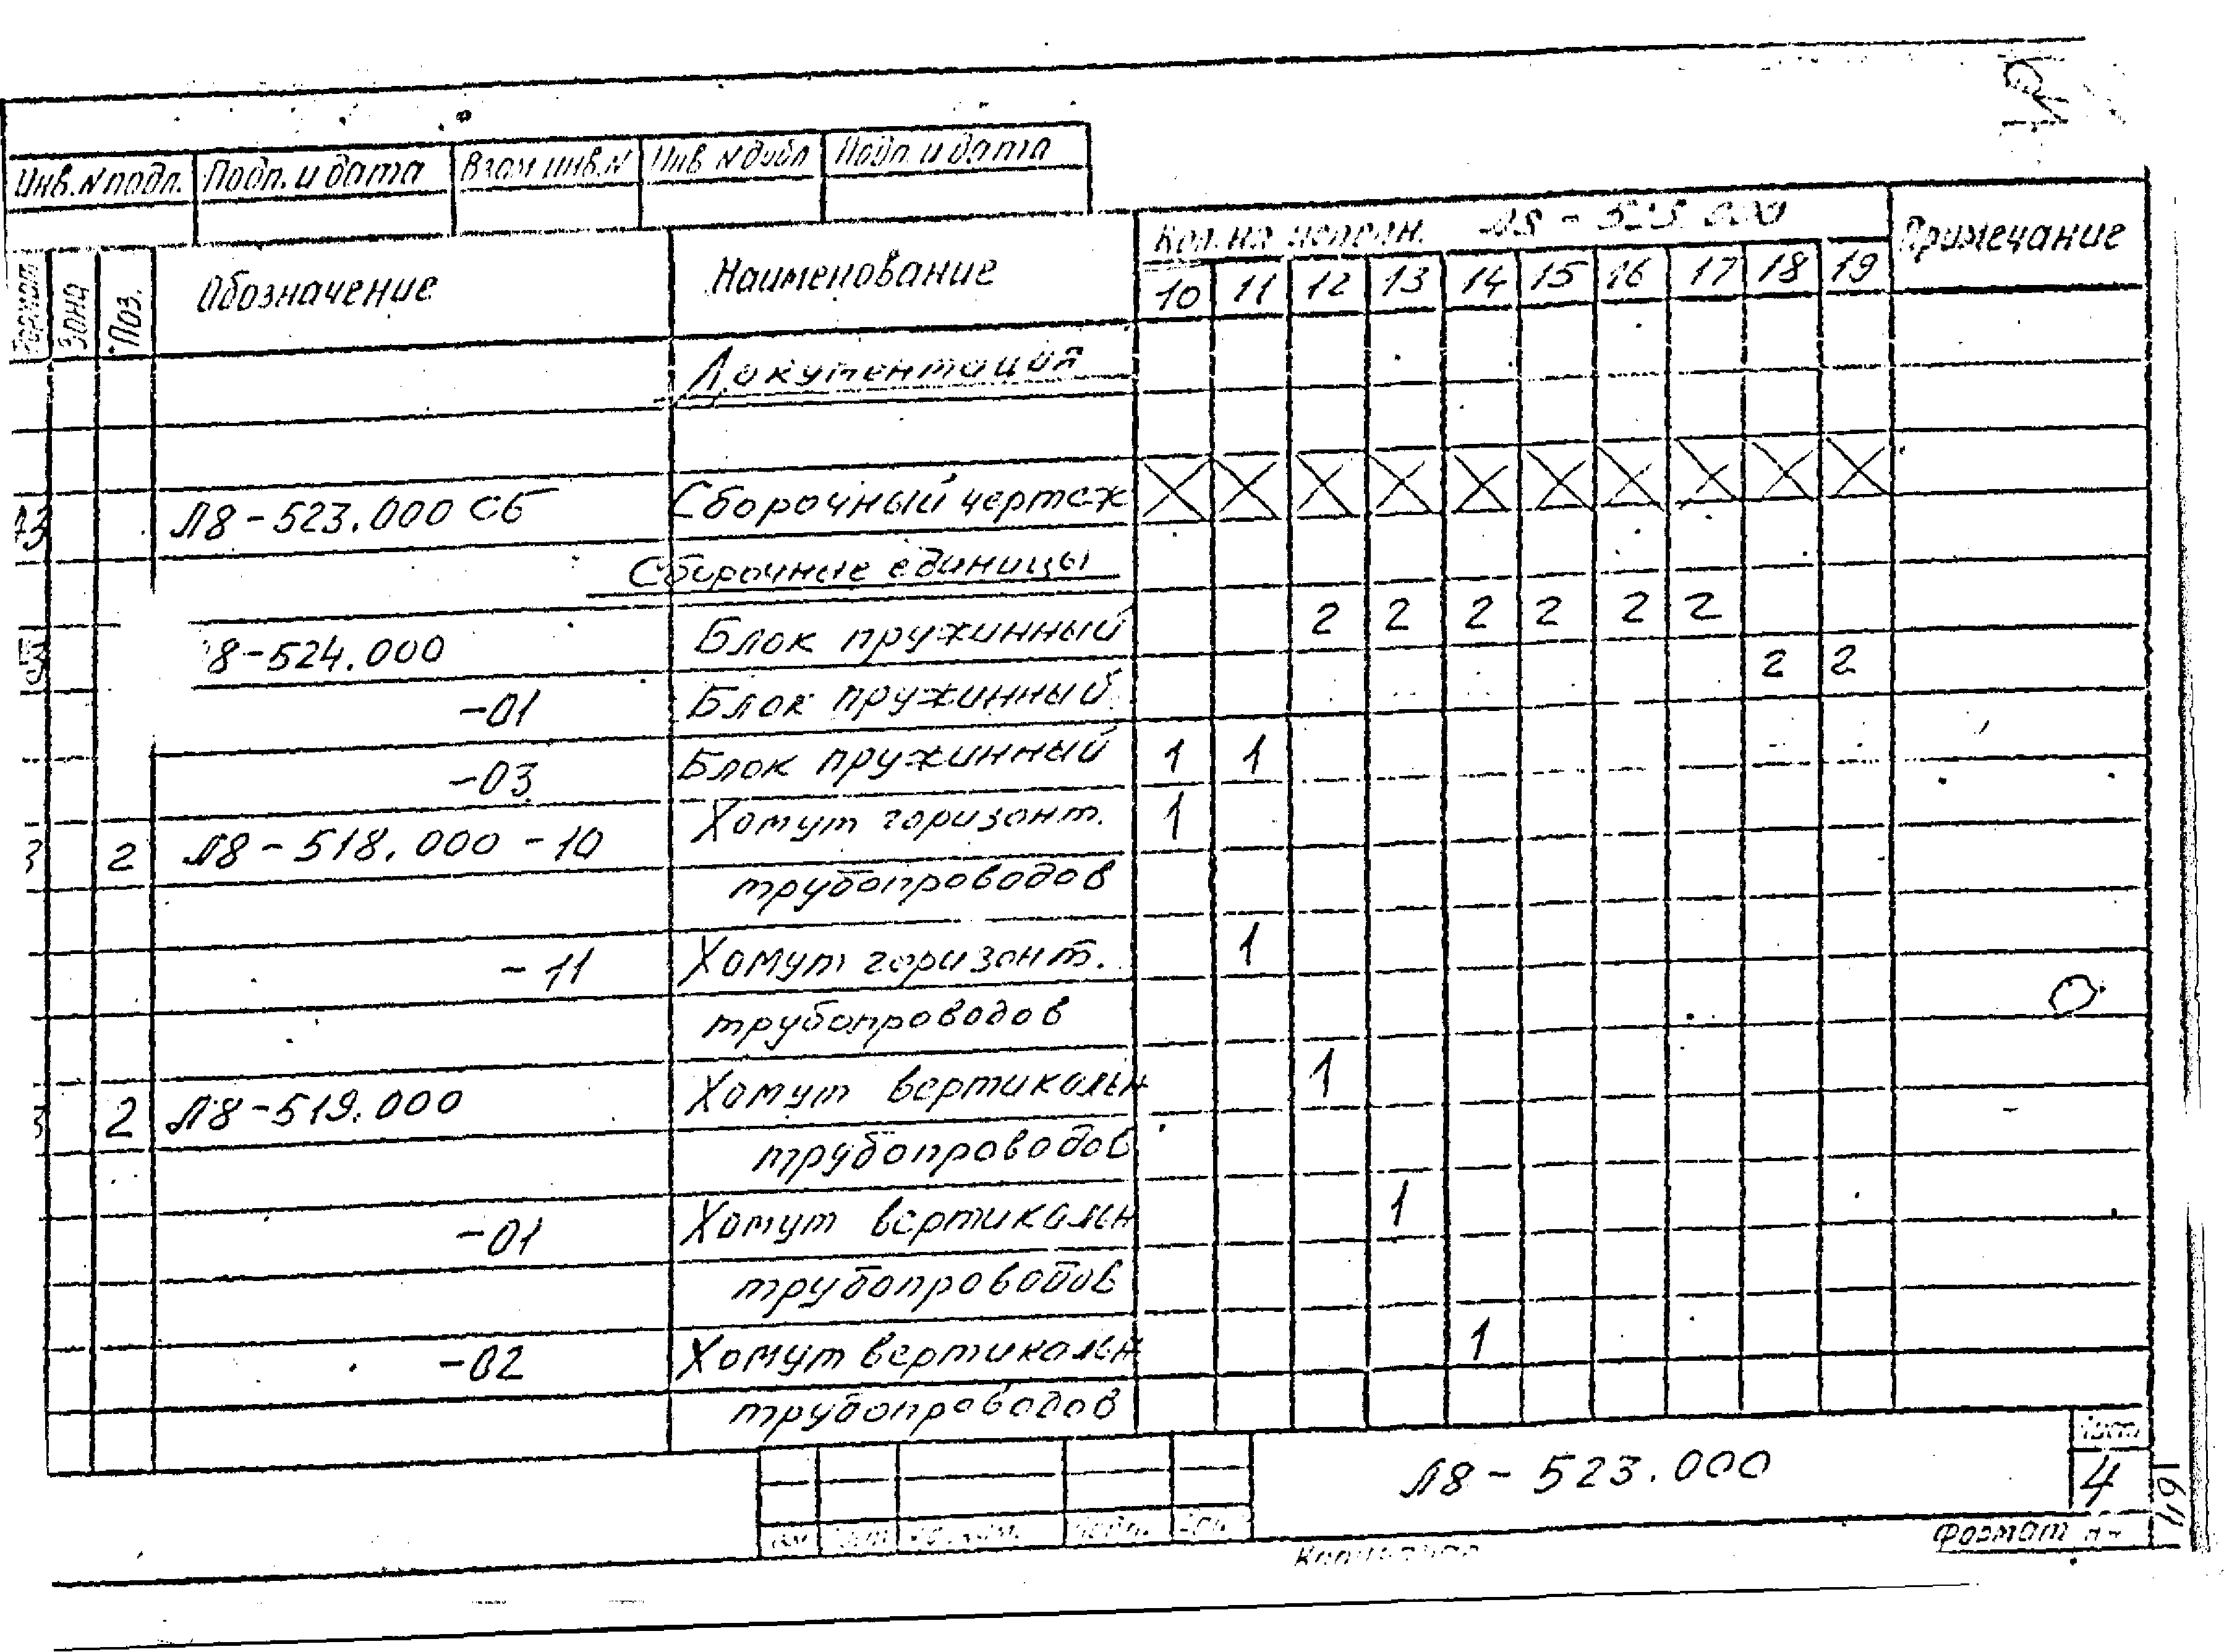 Инв. N подл. Подп. и дата Взам инв. N Инв N дубл Подп. и дата
Формат Зона Поз. Обозначение Наименование Кол. на исполн. Л8 - 523.000 Примечание
10 11 12 13 14 15 16 17 18 19
Документация
Л8-523.000 СБ Сборочный чертеж
Сборочные единицы
8-524.000 Блок пружинный 2 2 2 2 2 2
-01 Блок пружинный 2 2
-03 Блок пружинный 1 1
3 2 Л8-518.000-10 Хомут горизонт. 1
трубопроводов
-11 Хомут горизонт. 1
трубопроводов
3 2 Л8-519.000 Хомут вертикальн 1
трубопроводов
-01 Хомут вертикальн 1
трубопроводов
-02 Хомут вертикальн 1
трубопроводов
Л8-523.000
Лист
4
Копировал
Формат